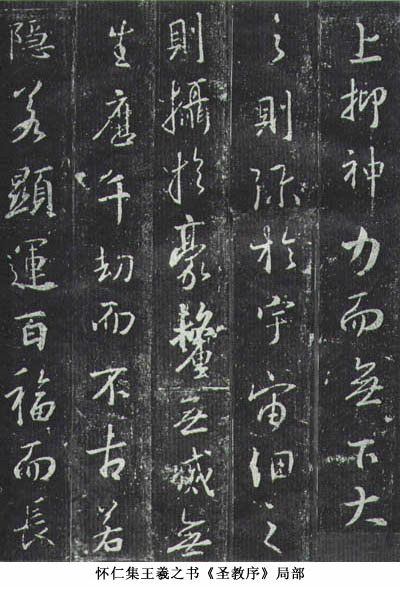 上抑神力而無下大
之則弥於宇宙細之
則攝於豪釐無滅無
生歷千劫而不古若
隱若顯運百福而長
怀仁集王羲之书《圣教序》局部